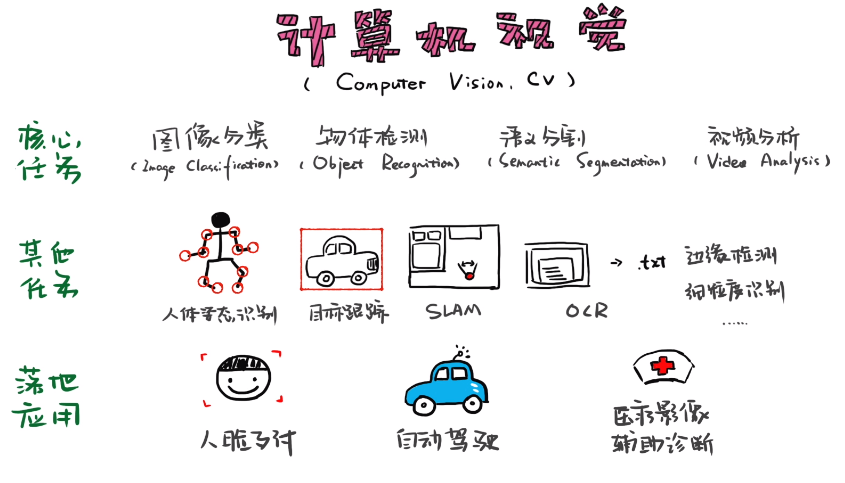 计算机视觉
( Computer Vision, CV )
核心任务
图像分类
( Image Classification)
物体检测
( Object Recognition)
语义分割
(Semantic Segmentation)
视频分析
( Video Analysis)
其他任务
人体姿态识别
目标跟踪
SLAM
OCR
→ .txt
边缘检测
细粒度识别
......
落地应用
人脸支付
自动驾驶
医疗影像
辅助诊断